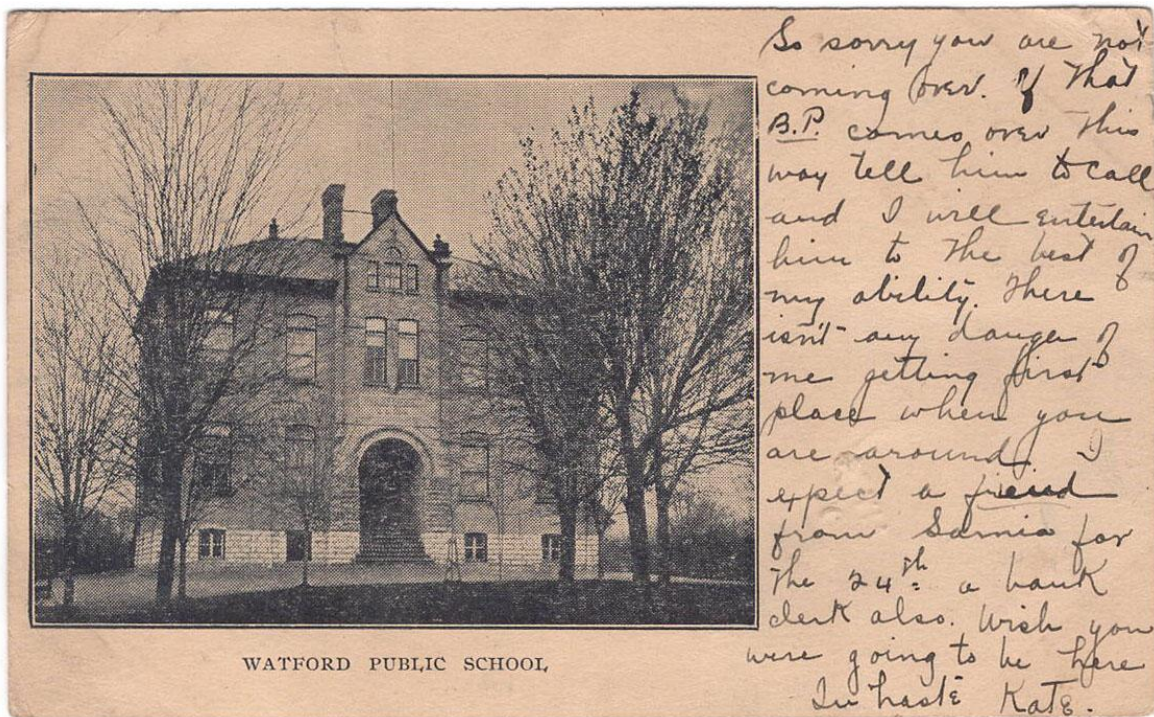 So sorry you are not
coming over. If that
B.P. comes over this
way tell him to call
and I will entertain
him to the best of
my ability. There
isn't any danger of
me getting first
place when you
are around. I
expect a friend
from Sarnia for
the 24th a bank
clerk also. Wish you
were going to be here
In haste Kate.
WATFORD PUBLIC SCHOOL